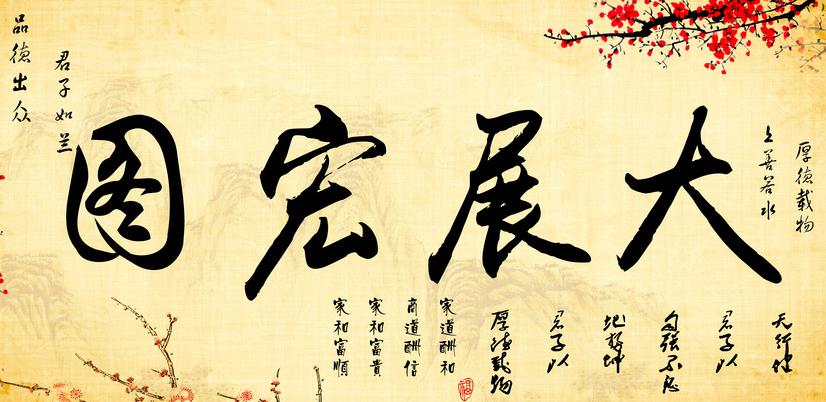 厚德载物
上善若水
大展宏图
君子如兰
品德出众
天行健
君子以
自强不息
地势坤
君子以
厚德载物
家道酬和
商道酬信
家和富貴
家和富順
福